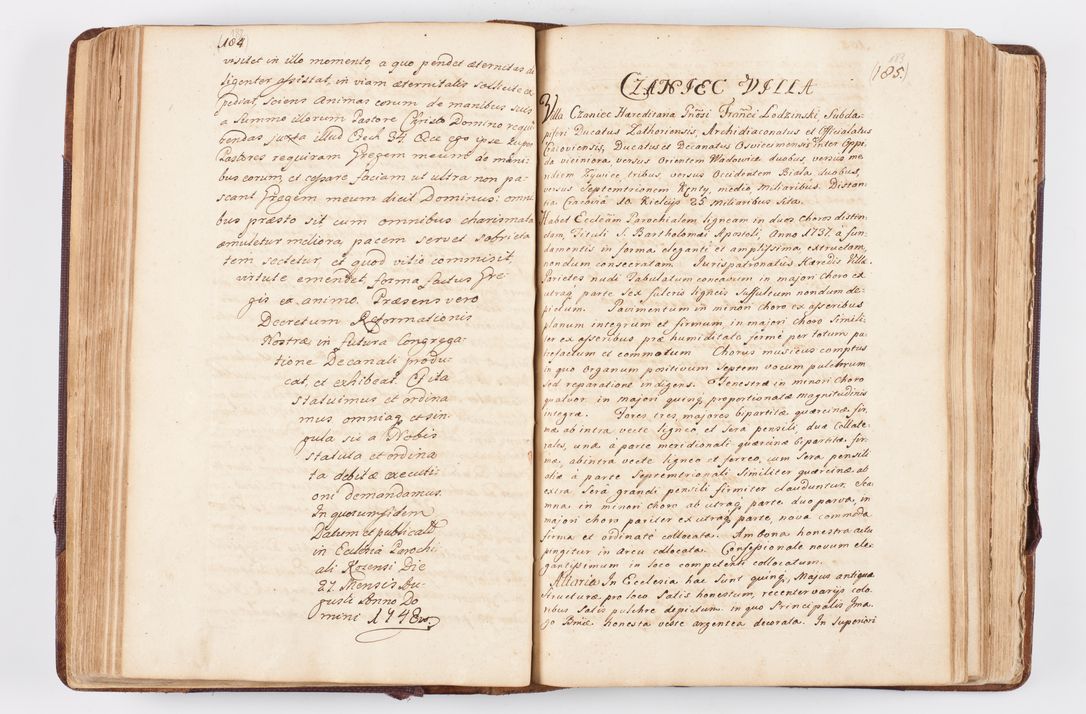 (184
visitet in illo momento, a quo pendet æternitas di
ligenter assistat, in viam æternitatis sollicite ex
pediat, sciens animas eorum de manibus suis
a Summo illorum Pastore Christo Domino requi
rendas juxta illud Ezech 34. Ecce ego ipse super
Pastores requiram Gregem meum de mani
bus eorum, et cessare faciam ut ultra non pa
scant Gregem meum dicit Dominus: omni
bus præsto sit cum omnibus charismata
æmuletur meliora, pacem servet sobrieta
tem sectetur, et quod vitio commisit
virtute emendet, forma factus Gre
gis ex animo. Præsens vero
Decretum Reformationis
Nostræ in futura Congrega
tione Decanali produ
cat, et exhibeat. Et ita
statuimus et ordina
mus omniaq et sin
gula sic a Nobis
statuta et ordina
ta debitæ executi
oni demandamus.
In quorum fidem
Datum et publicatt
in Ecclesia Parochi
ali Kozensi Die
27 Mensis Au
gusti Anno Do
mini 1748vo.
183
(185)
CZANIEC VILLA
Villa Czaniec Hæreditaria Gnosi Franci Lodzinski, Subda
piferi Ducatus Zathoriensis, Archidiaconatus et Officialatus
Cracoviensis, Ducatus et Decanatus Osviecimensis inter Oppi
da viciniora, versus Orientem Wadowice duobus, versus me
ridiem Zywiec tribus, versus Occidentem Biala duobus,
versus Septemtrionem Kenty, medio, miliaribus. Distan
tia Cracovia 10. Kielciis 25 miliaribus sita.
Habet Ecclesiam Parochialem ligneam in duos Choros distin
ctam, Tituli S. Bartholomæi Apostoli, Anno 1737. a fun
damentis in forma eleganti et amplissima extructam,
nondum consecratam. Jurispatronatus Hæredis Villæ.
Parietes nudi Tabulatum concavum in majori Choro ex
utraq parte sex fulcris ligneis suffultum nondum de
pictum. Pavimentum in minori choro ex asseribus
planum integrum et firmum, in majori Choro simili
ter ex asseribus præ humiditate fermè per totum pu
trefactum et commotum Chorus musicus comptus
in quo Organum positivum Septem vocum pulchrum
sed reparatione indigens. Fenestræ in minori Choro
quatuor, in majori quinq, proportionatæ magnitudinis
integræ. Fores tres, majores bipartitæ quærcinæ fir
mæ ab intra vecte ligneo et sera pensili, duæ Collate
rales, una à parte meridionali quærcinæ bipartitæ fir
mæ, abintra vecte ligneo et ferreo, cum sera pensili
aliæ à parte Septemtrionali similiter quærcinæ ab
extra sera grandi pensili firmiter clauduntur. Sca
mna in minori choro ab utraq parte duo parva, in
majori choro pariter ex utraq parte, nova commoda
firma et ordinatè collocata. Ambona honestra actu
pingitur in Arcu collocata. Confessionale novum ele
gantissimum in loco competenti collocatum.
Altaria In Ecclesia hac sunt quinq, Majus antiquæ
structuræ pro loco satis honestum, recenter varijs colo
ribus satis pulchre depictum in quo Principalis Ima
go Bmæ honesta veste argentea decorata. In superiori